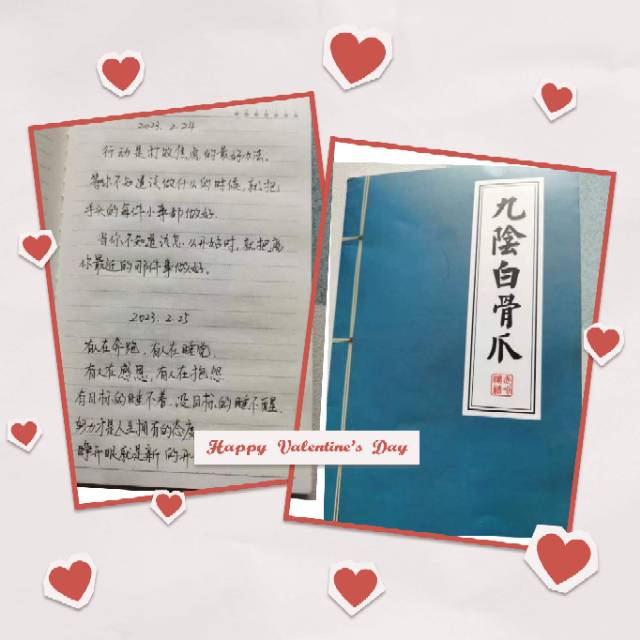 2023.2.24
行动是打败焦虑的最好办法。
当你不知道该做什么的时候,就把
手头的每件小事都做好。
当你不知道该怎么开始时,就把离
你最近的那件事做好。
2023.2.25
有人在奔跑,有人在睡觉,
有人在感恩,有人在抱怨
有目标的睡不着,没目标的睡不醒,
努力才是人生拥有的态度
睁开眼就是新的开
九陰白骨爪
Happy Valentine's Day